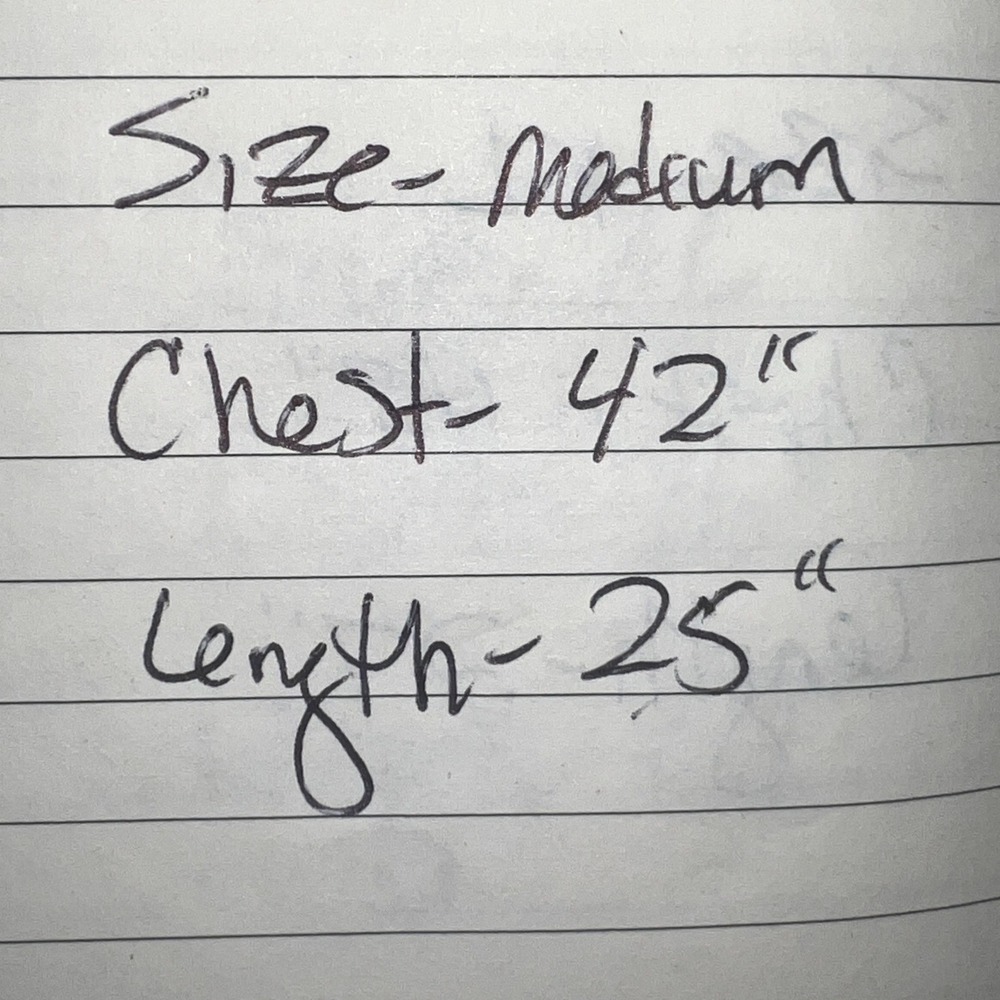 Size- Medium
Chest- 42"
Length- 25"